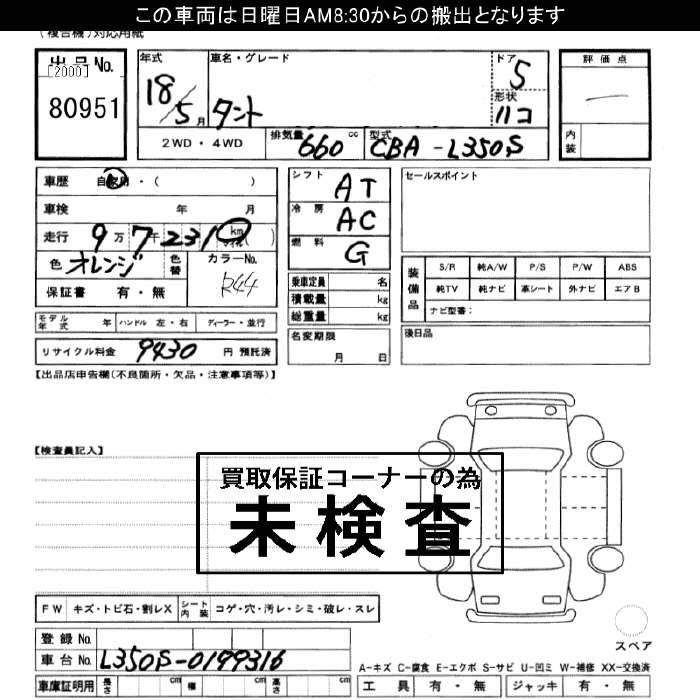 この車両は日曜日AM8:30からの搬出となります
(複合機)対応用紙
出品No.
[2000]
80951
年式
18/5月
車名・グレード
タント
ドア
5
形状
ハコ
評価点
内装
2WD・4WD
排気量 660 cc
型式 CBA-L350S
車歴 自家用・( )
車検 年 月
走行 9万7千231 km マイル( )
色 オレンジ 色替
カラーNo. R44
保証書 有・無
シフト AT
冷房 AC
燃料 G
乗車定員 名
積載量 kg
総重量 kg
名変期限
月 日
セールスポイント
装備品
S/R 純A/W P/S P/W ABS
純TV 純ナビ 革シート 外ナビ エアB
ナビ型番:
後日品
モデル年式 年 ハンドル 左・右 ディーラー・並行
リサイクル料金 9430 円 預託済
【出品店申告欄(不良箇所・欠品・注意事項等)】
【検査員記入】
買取保証コーナーの為
未検査
FW キズ・トビ石・割レX シート内装 コゲ・穴・汚レ・シミ・破レ・スレ
スペア
登録No.
車台No. L350S-0199316
A-キズ C-腐食 E-エクボ S-サビ U-凹ミ W-補修 XX-交換済
車庫証明用 長さ cm 幅 cm 高さ cm
工具 有・無 ジャッキ 有・無